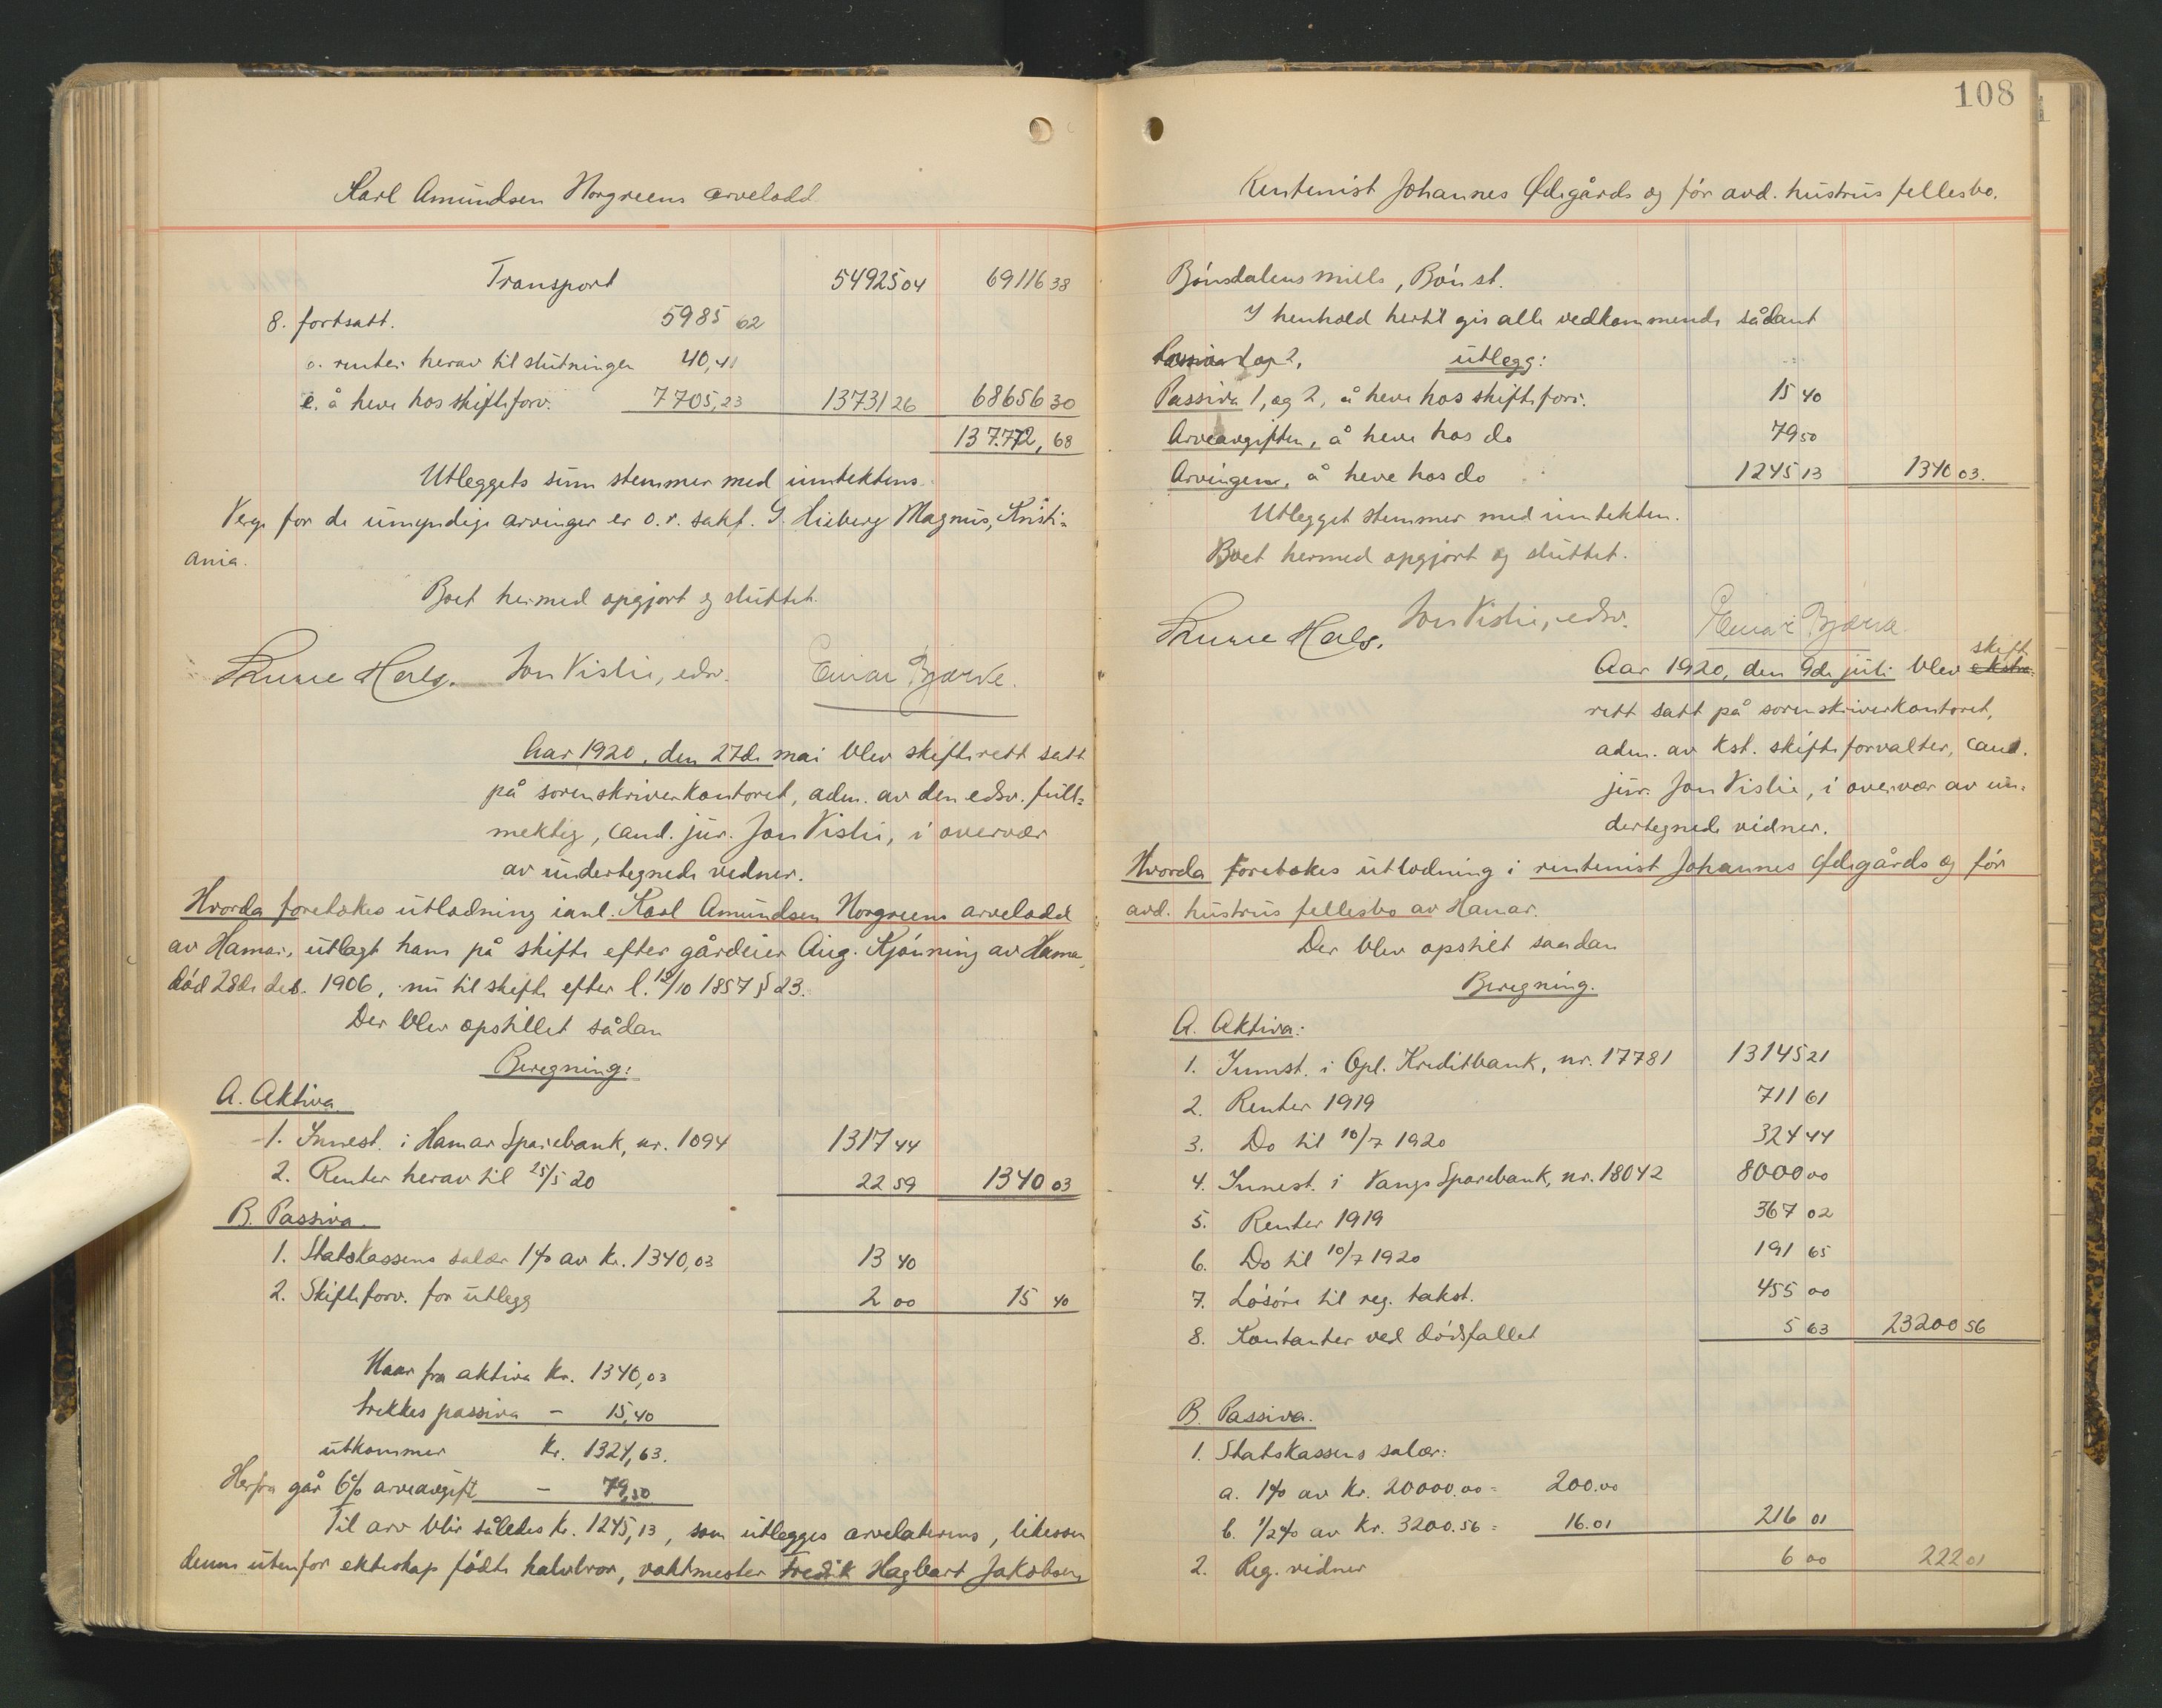 Karl Amundsen Norgreens arvelodd
Transport 54925 04 69116 38
8. fortsatt. 5985 62
renter herav til slutningen 40,41
e. å heve hos skifteforv. 7705,23 13731 26 68656 30
137.772,68
Utleggets sum stemmer med inntektens.
Verge for de umyndige arvinger er o.r. sakf. G. Hieberg Magnus, Kristi=
ania.
Boet hermed opgjort og sluttet.
Jon Vislie, edsv. Einar Bjørke.
Aar 1920, den 27de mai blev skifterett satt
på sorenskriverkontoret, adm. av den edsv. full=
mektig, cand. jur. Jon Vislie, i overvær
av undertegnede vidner.
Hvorda foretokes utlodning i anl. Karl Amundsen Norgreens arvelodd
av Hamar, utlagt ham på skifte efter gårdeier Aug. Kjønning av Hamar,
død 28de des. 1906, nu til skifte efter l. 12/10 1857 § 23.
Der blev opstillet sådan
Beregning:
A. Aktiva
1. Innest. i Hamar Sparebank, nr. 1094 1317 44
2. Renter herav til 25/5 20 22 59 1340 03
B. Passiva.
1. Statskassens salær 1% av kr. 1340,03 13 40
2. Skifteforv. for utlegg 2 00 15 40
Naar fra aktiva kr. 1340,03
trekkes passiva - 15,40
utkommer kr. 1324,63.
Herfra går 6% arveavgift - 79,50
Til arv blir således kr. 1245,13, som utlegges arvelaterens, likesom
denne utenfor ekteskap fødte halvbror, vaktmester Fredrik Hagbart Jakobsen,
108
Rentenist Johannes Ødegårds og før avd. hustrus fellesbo.
Bønsdalens mølle, Bøn st.
I henhold hertil gis alle vedkommende sådant
Passiva 1 og 2, utlegg:
Passiva 1, og 2, å heve hos skifteforv. 15 40
Arveavgiften, å heve hos do 79 50
Arvingen, å heve hos do 1245 13 1340 03.
Utlegget stemmer med inntekten.
Boet hermed opgjort og sluttet.
Jon Vislie, edsv. Einar Bjørke
skifte
Aar 1920, den 9de juli blev ekstra=
rett satt på sorenskriverkontoret,
adm. av kst. skifteforvalter, cand.
jur. Jon Vislie, i overvær av un=
dertegnede vidner.
Hvorda foretokes utlodning i rentenist Johannes Ødegårds og før
avd. hustrus fellesbo av Hamar.
Der blev opstilt saadan
Beregning.
A. Aktiva:
1. Innst. i Opl. Kreditbank, nr. 17781 13145 21
2. Renter 1919 711 61
3. Do til 10/7 1920 324 44
4. Innest. i Vangs Sparebank, nr. 18042 8000 00
5. Renter 1919 367 02
6. Do til 10/7 1920 191 65
7. Løsøre til reg. takst. 455 00
8. Kontanter ved dødsfallet 5 63 23200 56
B. Passiva.
1. Statskassens salær:
a. 1% av kr. 20000.00 = 200.00
b. 1/2% av kr. 3200.56 = 16.01 216 01
2. Reg. vidner 6 00 222 01